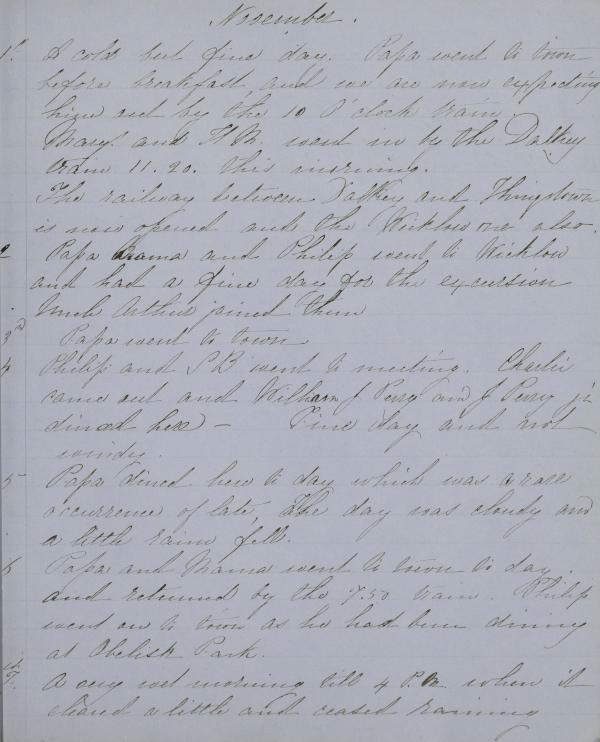 November.
1st A cold but fine day. Papa went to town
before breakfast and we are now expecting
him out by the 10 O'clock train.
Mary and H B. went in by the Dalkey
train 11.20. this morning.
The railway between Dalkey and Kingstown
is now opened and the Wicklow one also.
2 Papa Mama and Philip went to Wicklow
and had a fine day for the excursion
Uncle Arthur joined them
3rd Papa went to town
4 Philip and S B went to meeting. Charlie
came out and William J Perry and J Perry jr
dined here – Fine day and not
windy.
5 Papa dined here to day which was a rare
occurrence of late, The day was cloudy and
a little rain fell.
6 Papa and Mama went to town to day.
and returned by the 7.50 train. Philip
went on to town as he had been dining
at Obelisk Park.
7th. A very wet morning till 4 P.M when it
cleared a little and ceased raining